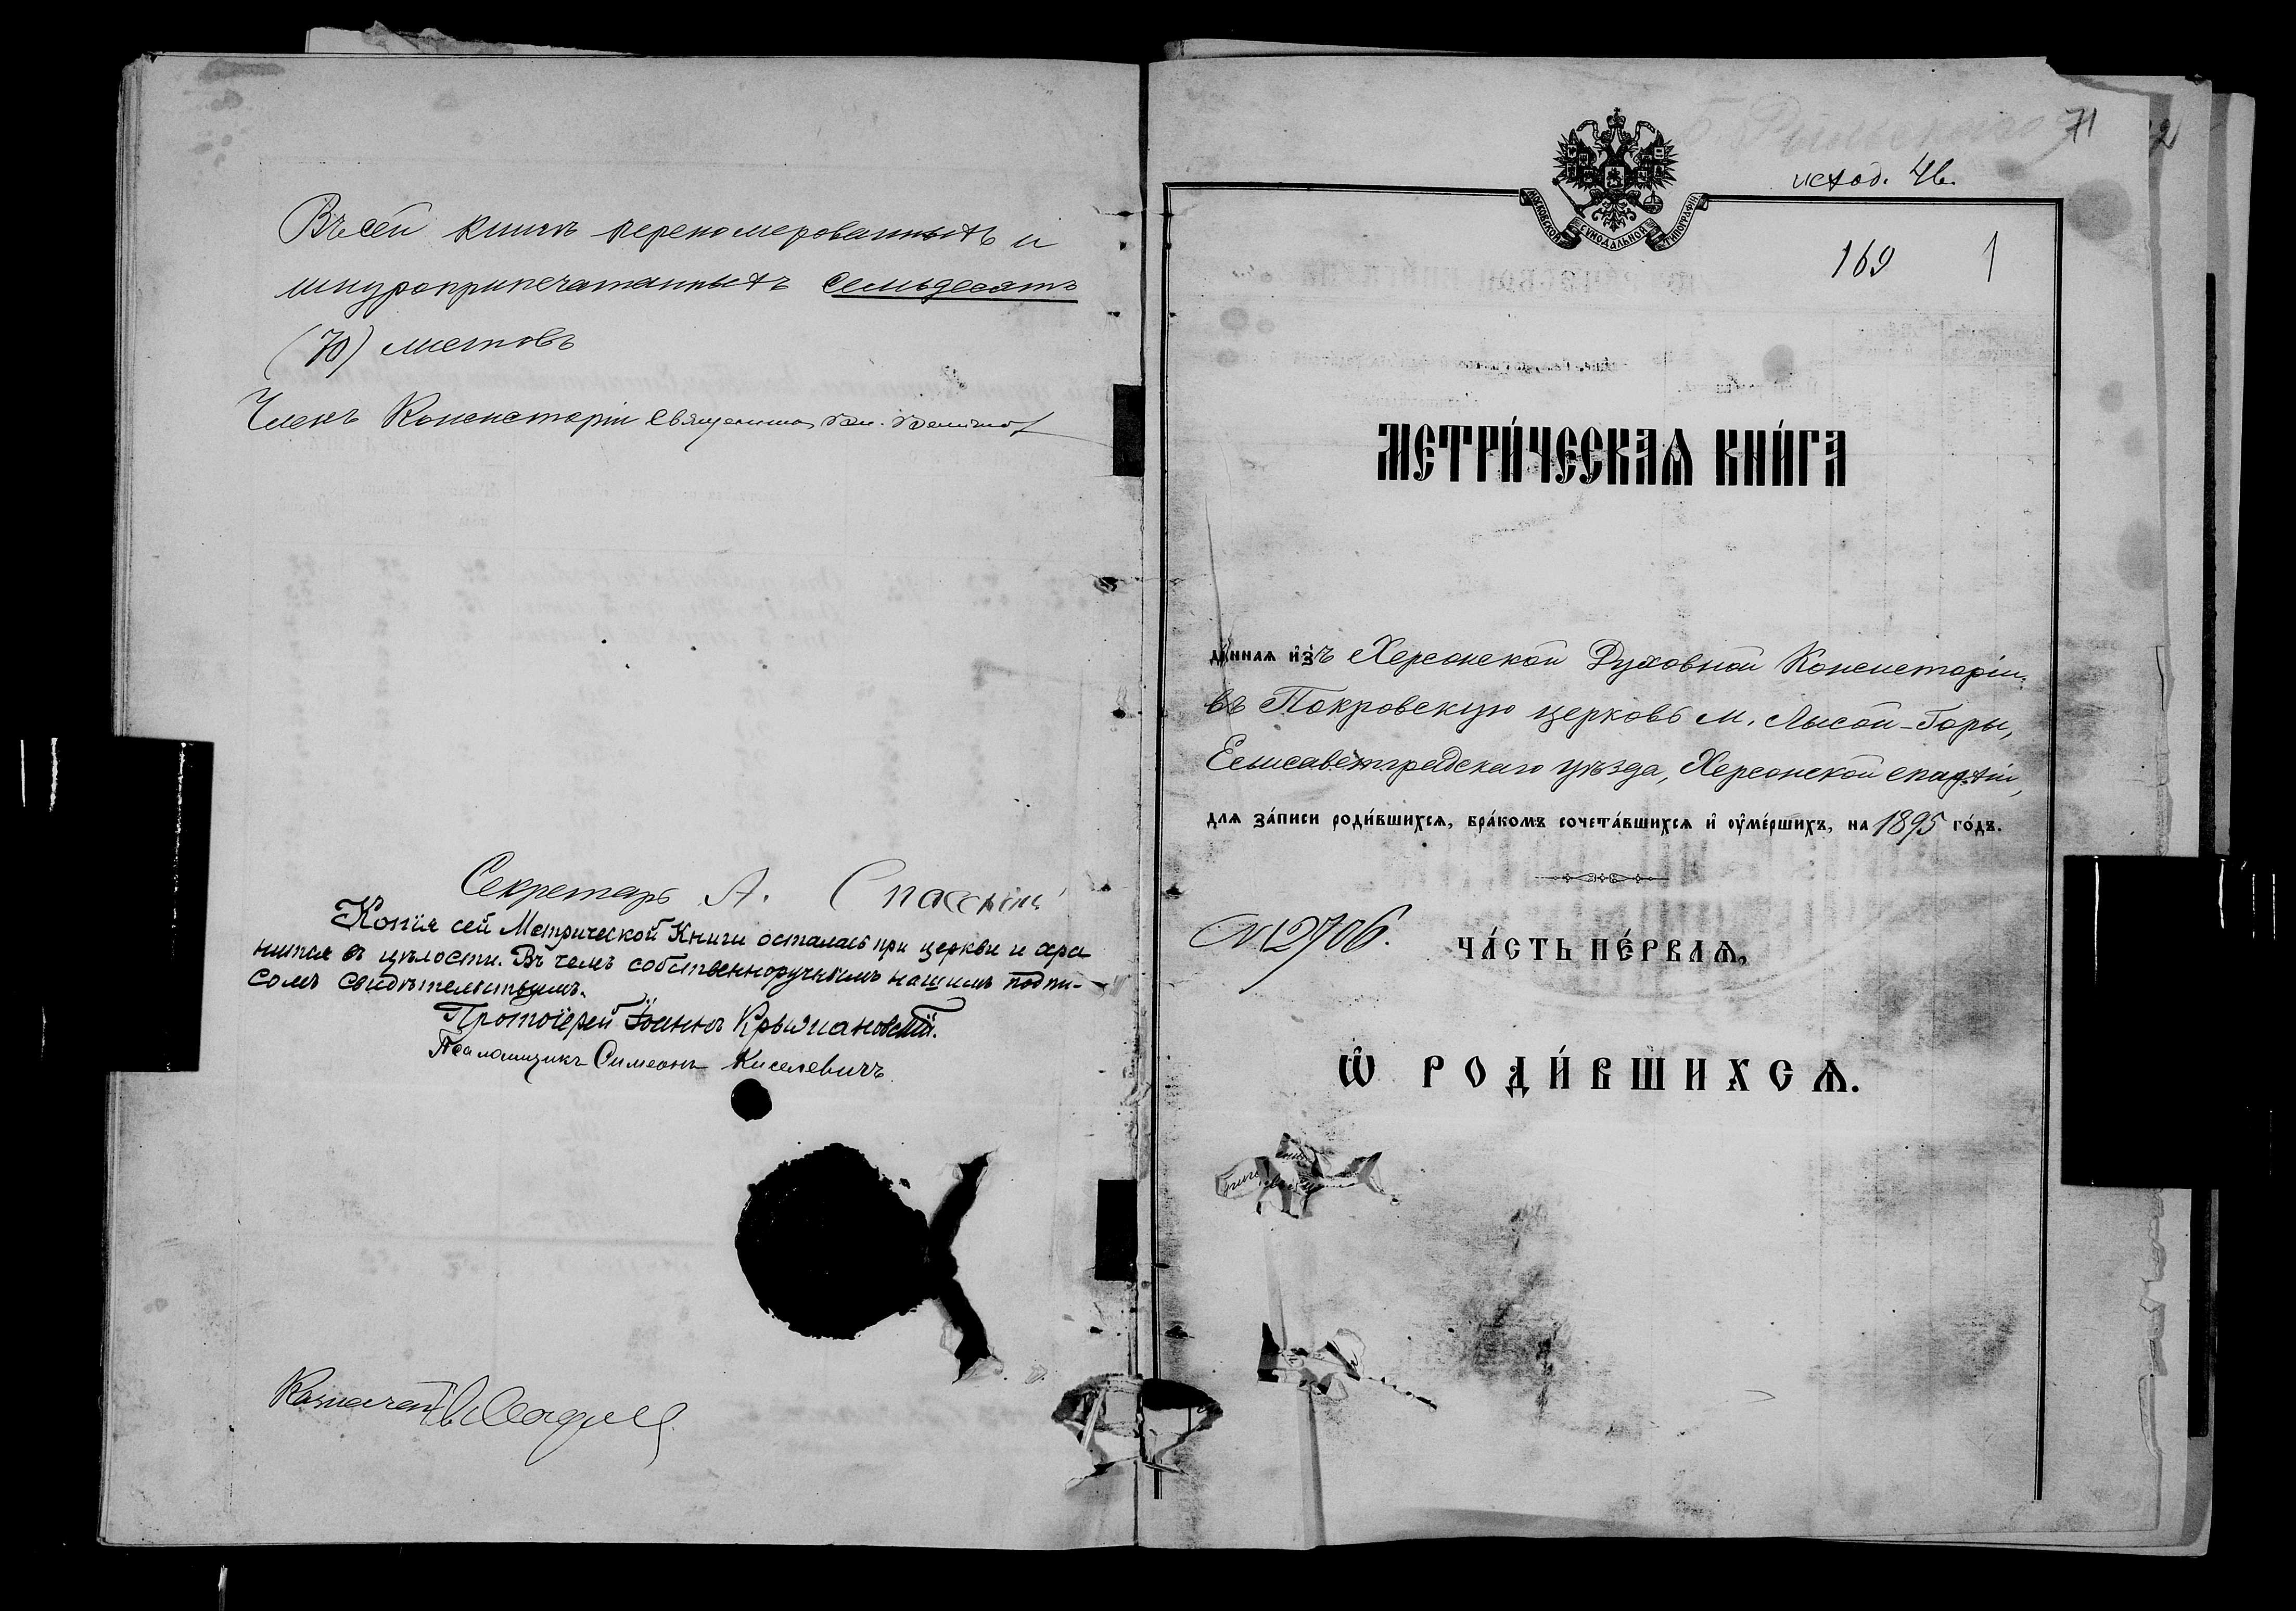 Въ сей книгѣ перенумерованныхъ и
шнуроприпечатанныхъ семьдесятъ
(70) листовъ
Членъ Консисторіи Священникъ
Секретарь А. Спасскій
Копія сей Метрической Книги осталась при церкви и хра
нится въ цѣлости. Въ чемъ собственноручнымъ нашимъ подпи-
сомъ свидѣтельствуемъ.
Протоіерей Іоаннъ Крыжановскій.
Псаломщикъ Симеонъ Киселевичъ
Казначей
71
исход. 4в.
МОСКОВСКОЙ СѴНОДАЛЬНОЙ ТИПОГРАФІИ
169 1
МЕТРИ́ЧЕСКАѦ КНИ́ГА
да́ннаѧ и҆з̾ъ Херсонской Духовной Консисторіи
въ Покровскую церковь м. Лысой-Горы,
Елисаветградскаго уѣзда, Херсонской епархіи,
для за́писи роди́вшихсѧ, бра́комъ сочета́вшихсѧ и҆ оу҆ме́ршихъ, на 1895 го́дъ.
№ 12706.
ЧА́СТЬ ПЕ́РВАѦ,
Ѽ РОДИ́ВШИХСѦ.